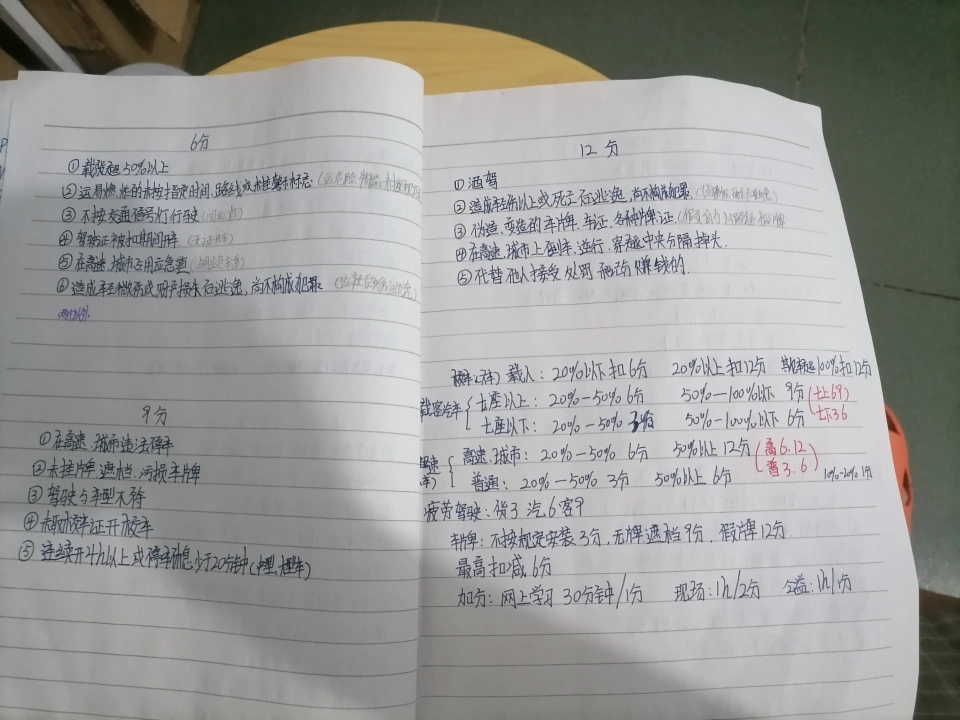 6分
①载货超50%以上
②运易燃、性的未按指定时间、路线或未挂警示标志
③不按交通信号灯行驶(闯红灯)
④驾驶证被扣期间开车(无证开车)
⑤在高速、城市占用应急道
⑥造成轻微伤或财产损失后逃逸,尚不构成犯罪
9分
①在高速、城市违法停车
②未挂牌、遮挡、污损车牌
③驾驶与车型不符
④未取校车证开校车
⑤连续开4h以上或停车休息少于20分钟
12分
①酒驾
②造成轻伤以上或死亡后逃逸,尚不构成犯罪
③伪造、变造的车牌、车证、各种牌、证
④在高速、城市上倒车、逆行、穿越中央分隔掉头.
⑤代替他人接受处理罚的赚钱的.
载人:20%以下扣6分 20%以上扣12分 100%扣12分
载客汽车 七座以上:20%-50% 6分 50%-100%以下 9分 (七上69
七座以下:20%-50% 3分 50%-100%以下 6分 七下36)
高速、城市:20%-50% 6分 50%以上 12分 (高6.12
普通:20%-50% 3分 50%以上 6分 普3.6) 10%-20% 1分
疲劳驾驶:货3 汽6 客9
车牌:不按规定安装3分,无牌遮档9分,假牌12分.
最高扣减6分
加分:网上学习 30分钟/1分 现场:1h/2分 公益:1h/1分